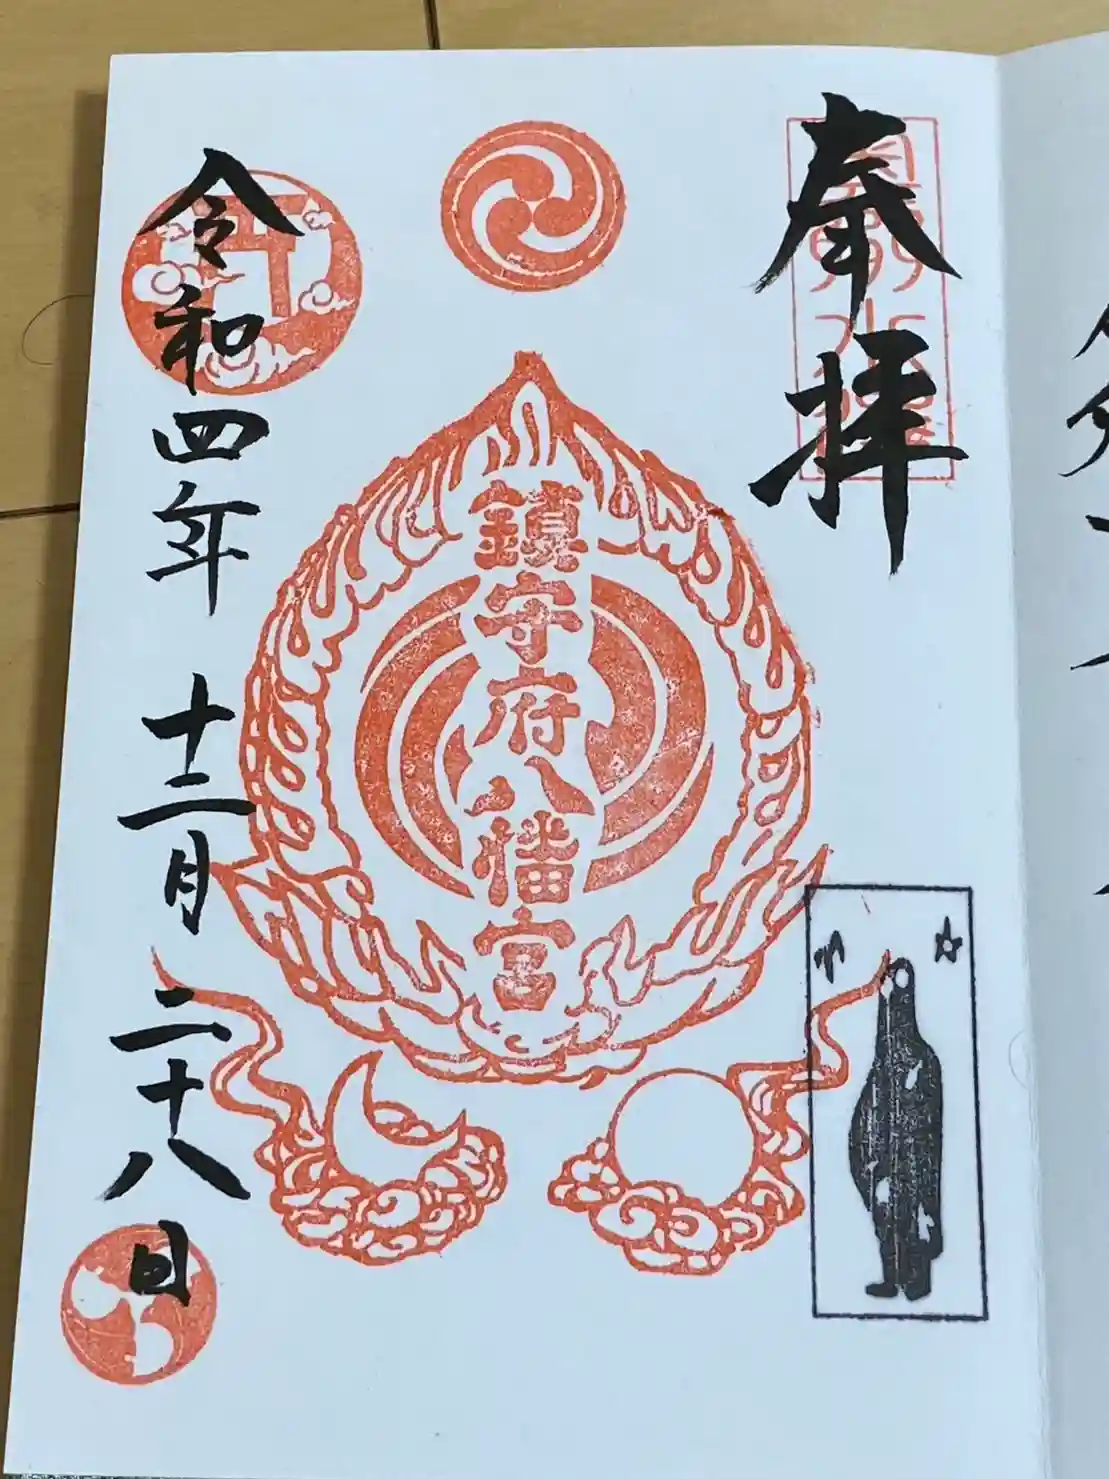 奉拝
鎮守府八幡宮
令和四年 十二月 二十八日